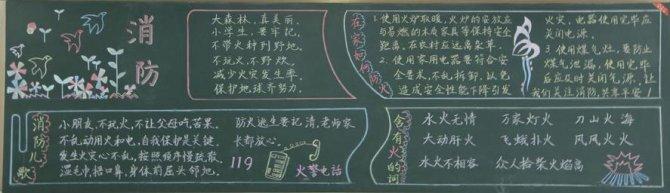 消防
大森林，真美丽，
小学生，要牢记，
不带火种到野地，
不玩火，不野炊，
减少火灾发生率，
保护地球齐努力。
在家如何防火
1.使用火炉取暖，火炉的安放应
与易燃的木质家具等保持安全
距离，在农村应远离柴草。
2.使用家用电器要符合安
全要求，不乱拆卸，以免
造成安全性能下降引发
火灾，电器使用完毕应
关闭电源。
3.使用煤气灶，要防止
煤气泄漏，使用完毕
后应及时关闭气源，让
我们关注消防，共享平安！
消防儿歌
小朋友，不玩火，不让父母吃苦果。
不乱动用火和电，自我保护是关键。
发生火灾心不乱，按照顺序慢疏散。
湿毛巾捂口鼻，身体前屈头邻地。
防火逃生要记清，老师家
长都放心。
119
火警电话
含有火的词
水火无情 万家灯火 刀山火海
大动肝火 飞蛾扑火 风风火火
水火不相容 众人拾柴火焰高